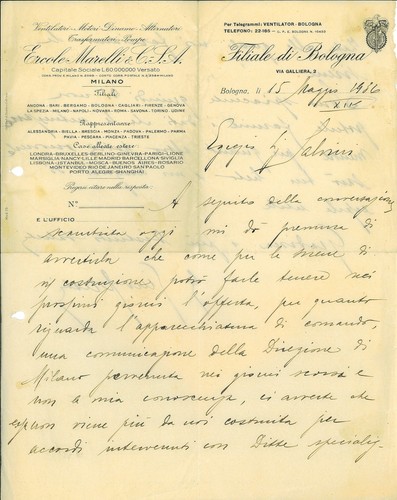 Ventilatori-Motori-Dinamo-Alternatori
Trasformatori-Pompe
Ercole Marelli & C. S.A.
Capitale Sociale L.60000000 Versato
MILANO
Filiali
ANCONA-BARI-BERGAMO-BOLOGNA-CAGLIARI-FIRENZE-GENOVA
LA SPEZIA-MILANO-NAPOLI-NOVARA-ROMA-SAVONA-TORINO-UDINE
Rappresentanze
ALESSANDRIA-BIELLA-BRESCIA-MONZA-PADOVA-PALERMO-PARMA
PESCARA-PIACENZA-TRIESTE
Case alleate estere
LONDRA-BRUXELLES-BERLINO-GINEVRA-PARIGI-LIONE
MARSIGLIA NANCY-LILLE MADRID BARCELLONA SIVIGLIA
LISBONA-ISTANBUL-MOSCA-BUENOS AIRES-ROSARIO
MONTEVIDEO RIO DE JANEIRO SAN PAOLO
PORTO ALEGRE-SHANGHAI
Pregasi citare nella risposta:
N.
E L'UFFICIO
Per Telegrammi: VENTILATOR-BOLOGNA
TELEFONO: 22-185 - U. P. E. BOLOGNA N.
Filiale di Bologna
VIA GALLIERA, 2
Bologna, li 15 Maggio 1936
XIV
Egregio Ing.
A seguito della conversazione
scambiata oggi mi dò premura di
avvertirla che come per le
n/ costruzione potrò farle tenere nei
prossimi giorni l'offerta, per quanto
riguarda l'apparecchiatura di comando,
una comunicazione della Direzione di
Milano pervenuta nei giorni scorsi e
non a mia conoscenza, ci avverte che
essa non viene più da noi costruita per
accordi intervenuti con Ditte specializ-